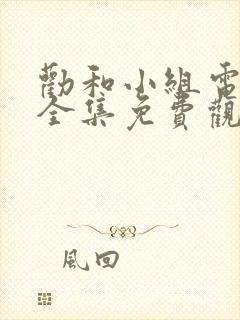 勸和小組電
全集免費觀
風回